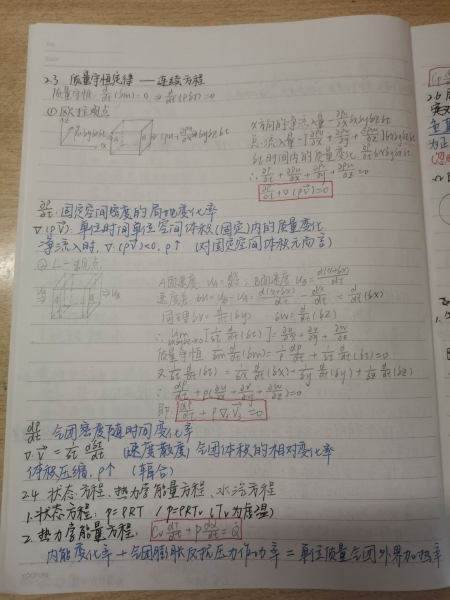 2.3 质量守恒定律——连续方程
质量守恒: d/dt(δm)=0 ⇒ d/dt(ρδτ)=0
① 欧拉观点
x方向的净流入量 -∂ρu/∂x δxδyδzδt
总流入量 -[∂ρu/∂x + ∂ρv/∂y + ∂ρw/∂z]δxδyδzδt
δt时间内的质量变化 ∂ρ/∂t δxδyδzδt
∴ ∂ρ/∂t + ∂ρu/∂x + ∂ρv/∂y + ∂ρw/∂z = 0
∂ρ/∂t + ∇·(ρV⃗) = 0
∂ρ/∂t: 固定空间密度的局地变化率
∇·(ρV⃗): 单位时间单位空间体积(固定)内的质量变化
净流入时, ∇·(ρV⃗)<0, ρ↑ (对固定空间体积元而言)
A面速度: u_A = dx/dt ; B面速度 u_B = d(x+δx)/dt
速度差 δu = u_B - u_A = d(x+δx)/dt - dx/dt = d/dt(δx)
同理 δv = d/dt(δy) δw = d/dt(δz)
质量守恒 1/δm d/dt(δm) = 1/ρ dρ/dt + 1/δτ d/dt(δτ) = 0
又 1/δτ d/dt(δτ) = 1/δx d/dt(δx) + 1/δy d/dt(δy) + 1/δz d/dt(δz)
∴ dρ/dt + ρ(∂u/∂x + ∂v/∂y + ∂w/∂z) = 0
即: dρ/dt + ρ∇·V⃗₃ = 0
dρ/dt 气团密度随时间变化率
∇·V⃗ = 1/δτ dδτ/dt (速度散度) 气团体积的相对变化率
体积压缩, ρ↑ (辐合)
2.4 状态方程、热力学能量方程、水汽方程
1. 状态方程: P=ρRT / P=ρRTv (Tv为虚温)
2. 热力学能量方程: Cv dT/dt + p dα/dt = Q̇
内能变化率 + 气团膨胀反抗压力作功率 = 单位质量气团外界加热率